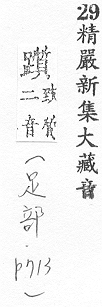 29精嚴新集大藏音
躓
致質
二音
(足部·p713)